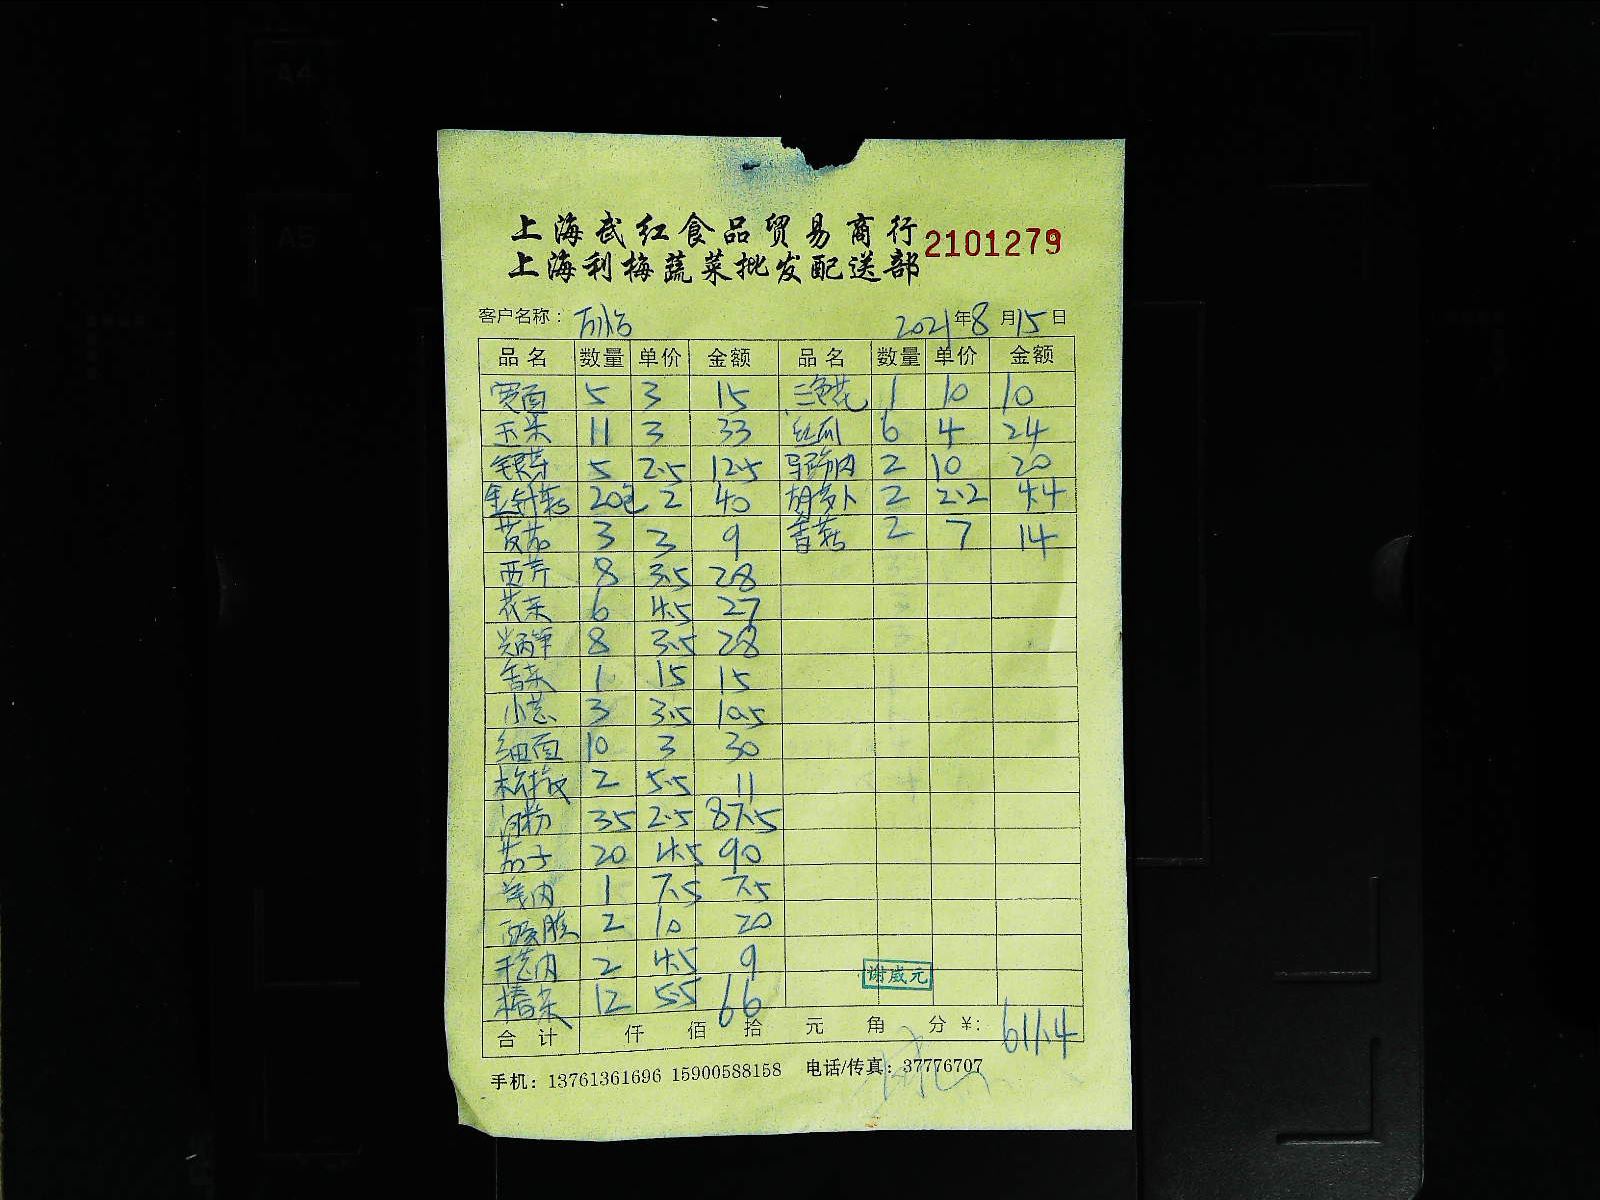 A4
A5
上海武红食品贸易商行
上海利梅蔬菜批发配送部
2101279
客户名称： 2021年8月15日
品名 数量 单价 金额 品名 数量 单价 金额
宽面 5 3 15 1 10 10
玉米 11 3 33 红瓜 6 4 24
银芽 5 2.5 12.5 2 10 20
金针菇 20包 2 40 胡萝卜 2 2.2 4.4
3 3 9 香菇 2 7 14
西芹 8 3.5 28
花菜 6 4.5 27
8 3.5 28
香菜 1 15 15
小葱 3 3.5 10.5
细面 10 3 30
2 5.5 11
河粉 35 2.5 87.5
茄子 20 4.5 90
1 7.5 7.5
2 10 20
2 4.5 9
12 5.5 66
谢威元
合计 仟 佰 拾 元 角 分 ¥: 611.4
手机：13761361696 15900588158 电话/传真：37776707